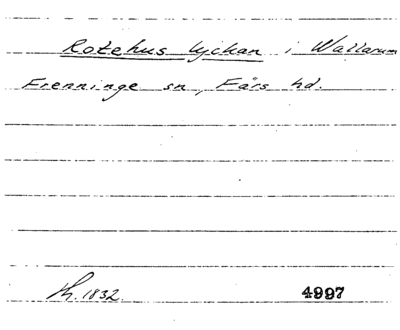 Rotehus lyckan i Wallarum
Frenninge sn, Färs hd.
Sk. 1832. 4997